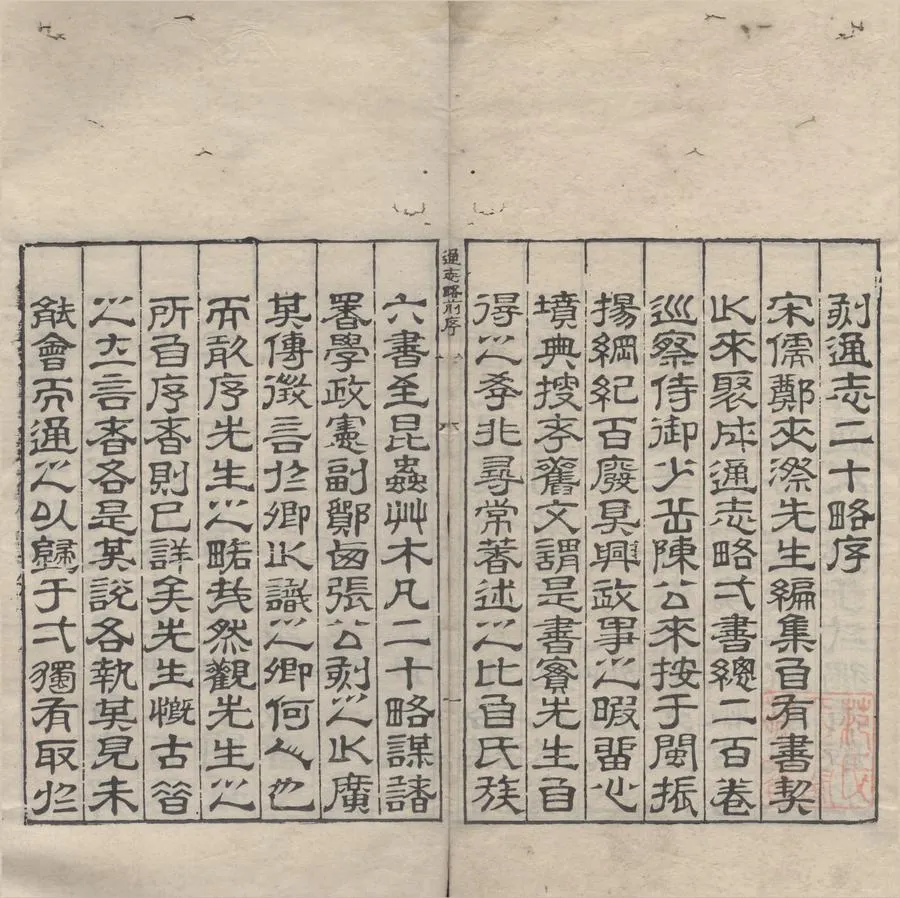 刻通志二十略序
宋儒鄭夾漈先生編集自有書契
以來聚成通志略弌書總二百卷
巡察侍御少岳陳公來按于閩振
揚綱紀百廢具興政事之暇留心
墳典搜求舊文謂是書實先生自
得之學非尋常著述之比自氏族
通志略前序
一
六書至昆蟲艸木凡二十略謀諸
署學政憲副鄮西張公刻之以廣
其傳徵言於卿以識之卿何人也
而敢序先生之略哉然觀先生之
所自序者則已詳矣先生慨古昔
之立言者各是其說各執其見未
能會而通之以歸于弌獨有取於